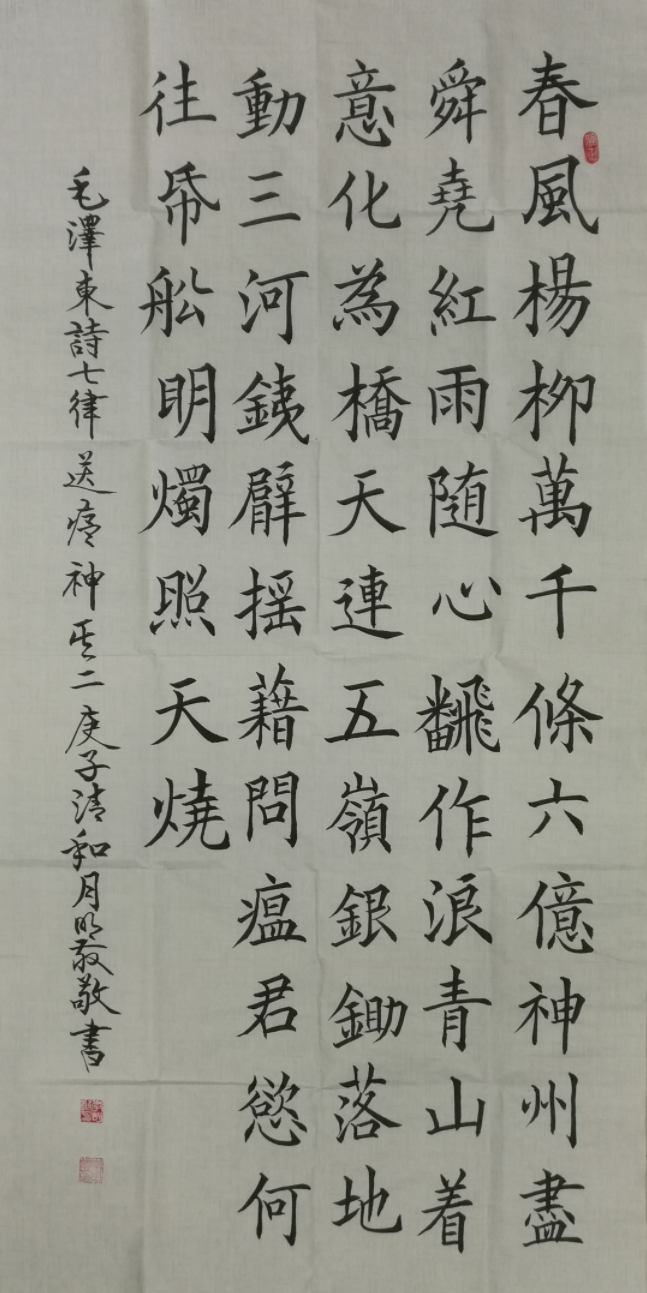 春風楊柳萬千條六億神州盡
舜堯紅雨随心飜作浪青山着
意化為橋天連五嶺銀鋤落地
動三河銕臂摇藉問瘟君慾何
往帋船明燭照天燒
毛澤東詩七律送瘟神其二庚子清和月明嚴敬書